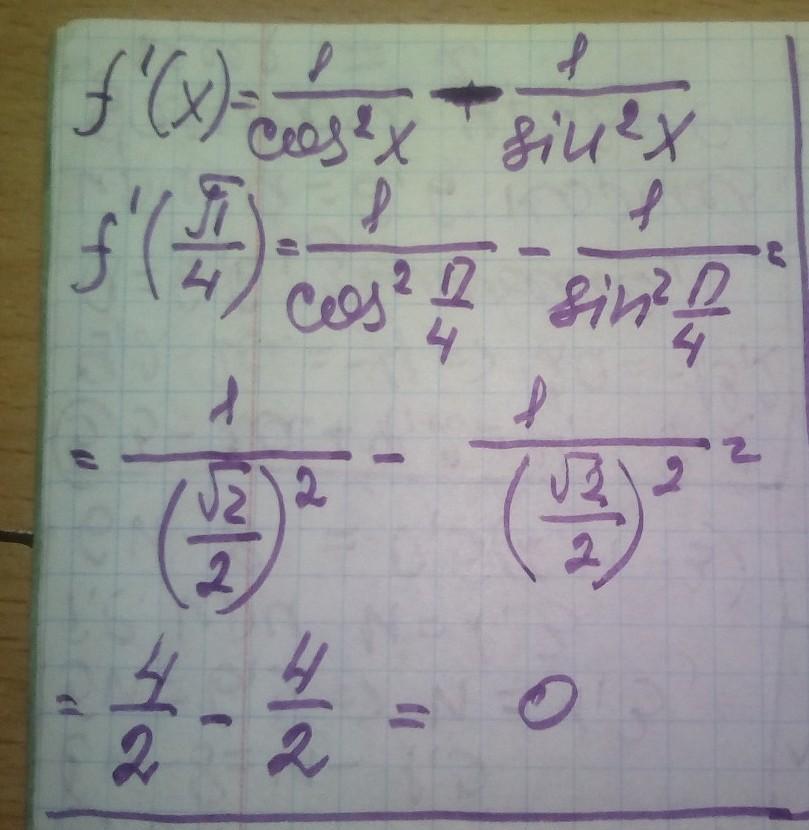 f'(x) = 1/cos²x - 1/sin²x
f'(π/4) = 1/cos² π/4 - 1/sin² π/4 =
= 1/(√2/2)² - 1/(√2/2)² =
= 4/2 - 4/2 = 0